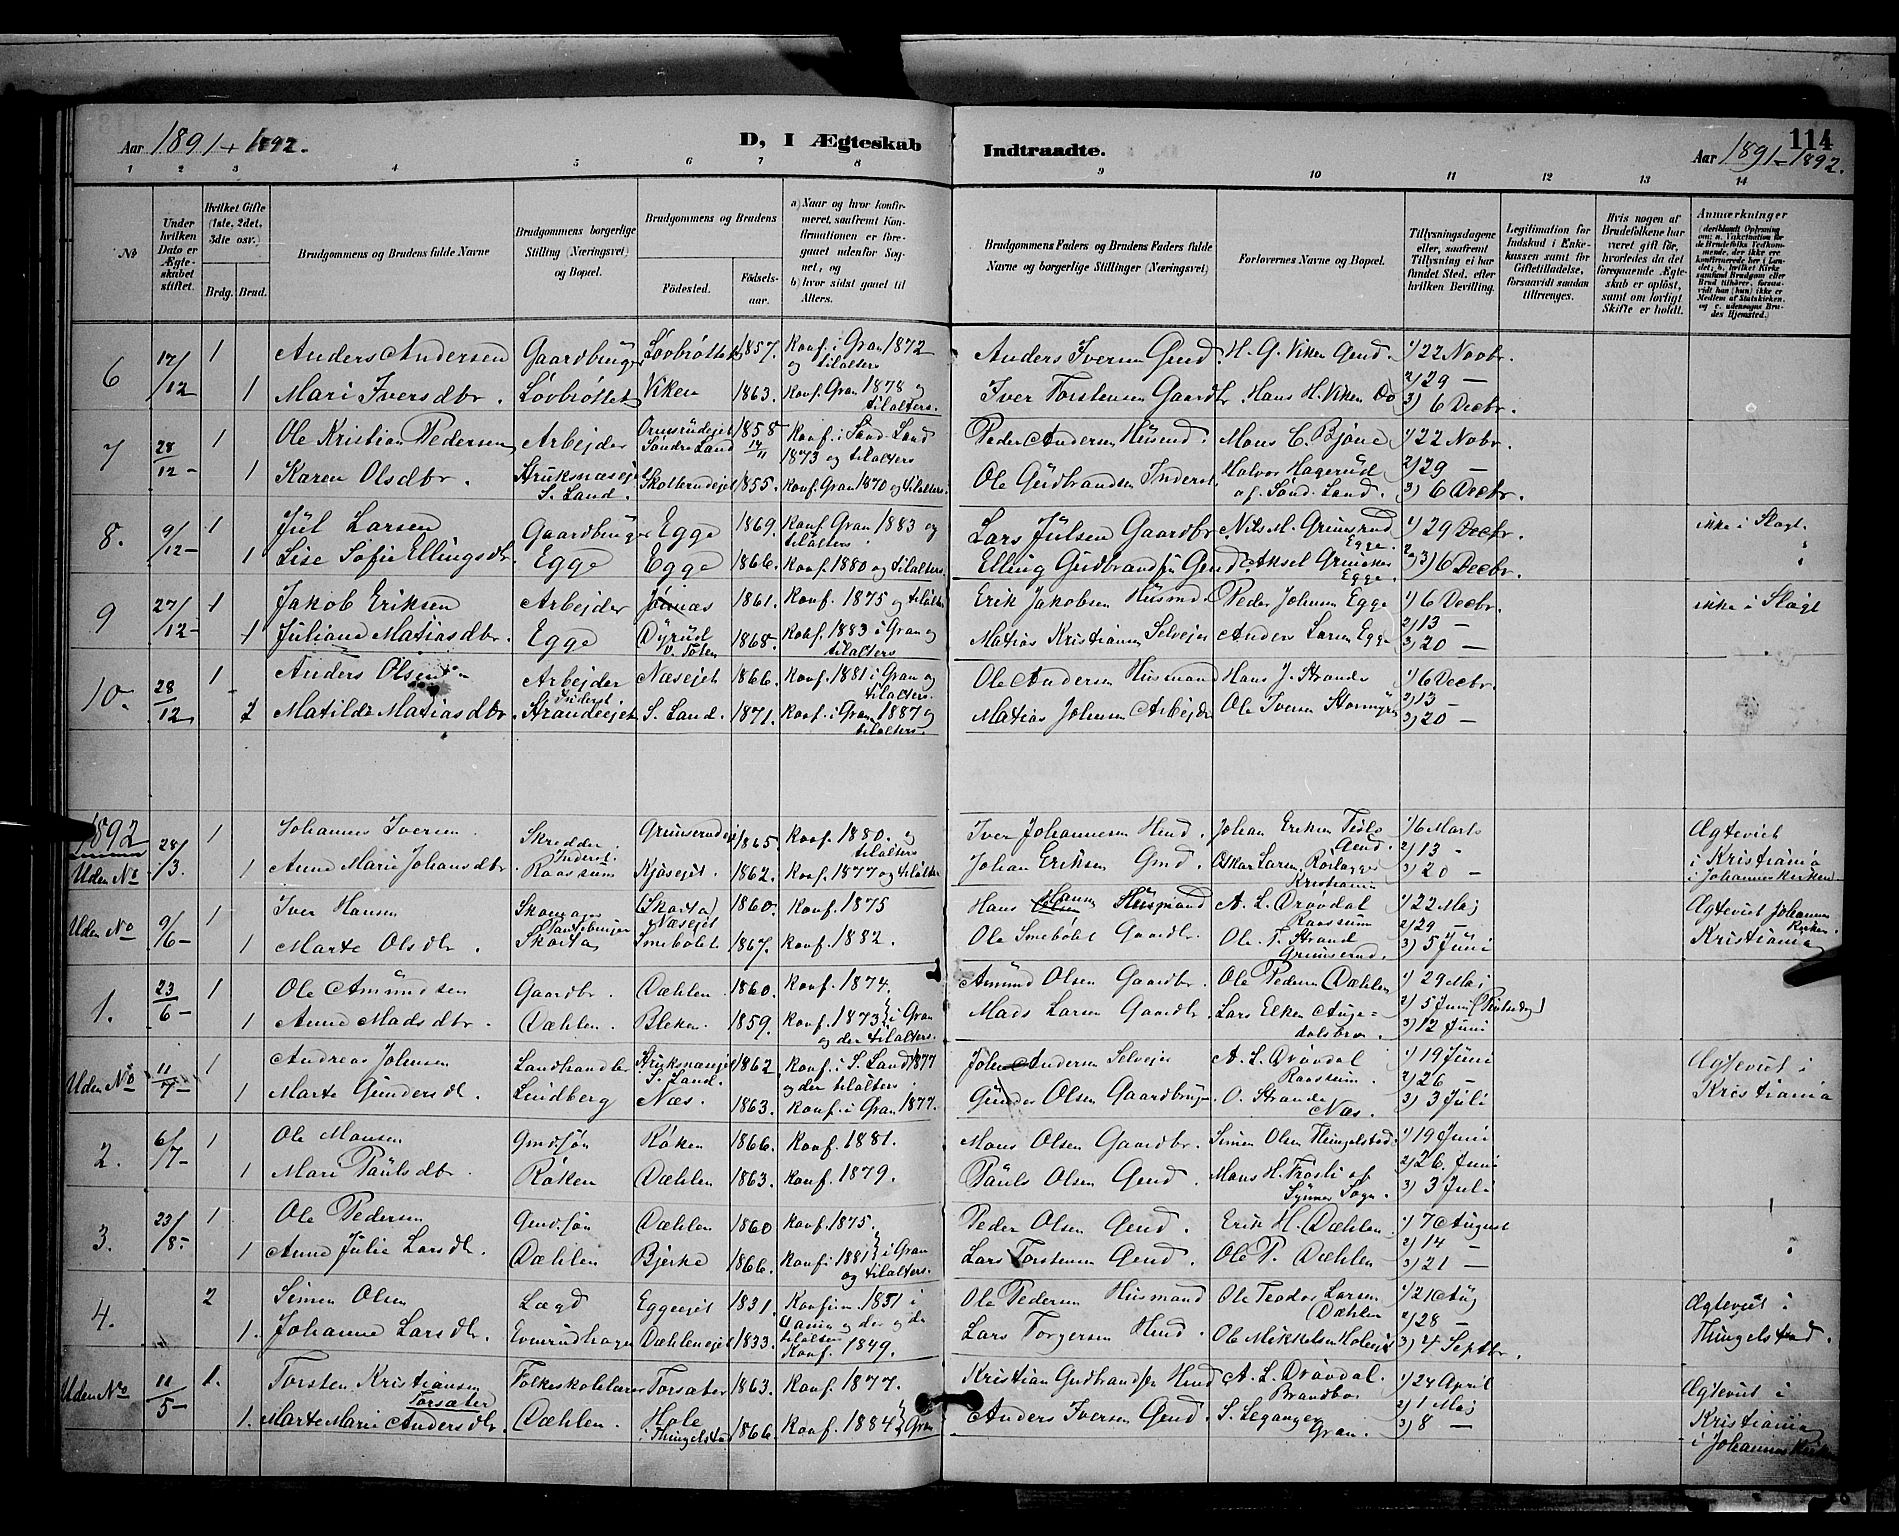 Aar 1891 + 1892.
D, I Ægteskab
Indtraadte.
114
Aar 1891-1892.
1 2 3 4 5 6 7 8 9 10 11 12 13 14
No
Under hvilken Dato er Ægteskabet stiftet.
Hvilket Gifte (1ste, 2det, 3die osv.)
Brdg. Brud.
Brudgommens og Brudens fulde Navne
Brudgommens borgerlige Stilling (Næringsvei) og Bopæl.
Brudgommens og Brudens
Fødested.
Fødselsaar.
a) Naar og hvor konfirmeret, saafremt Konfirmationen er foregaaet udenfor Sognet, og
b) hvor sidst gaaet til Alters.
Brudgommens Faders og Brudens Faders fulde Navne og borgerlige Stillinger (Næringsvei)
Forlovernes Navne og Bopæl.
Tillysningsdagene eller, saafremt Tillysning ei har fundet Sted, efter hvilken Bevilling.
Legitimation for Indskud i Enkekassen samt for Giftetilladelse, forsaavidt saadan tiltrænges.
Hvis nogen af Brudefolkene har været gift før, hvorledes da det foregaaende Ægteskab er opløst, samt om lovligt Skifte er holdt.
Anmærkninger
(deriblandt Oplysning om: a. Vaksination for de Brudefolks Vedkommende, der ikke ere konfirmerede her i Landet; b. hvilket Kirkesamfund Brudgom eller Brud tilhører, forsaavidt han (hun) ikke er Medlem af Statskirken, og c. udensogns Brudes Hjemsted.)
6 17/12 1 Anders Andersen Gaardbruger Løvbrøttet 1857. Konf. i Gran 1872 og tilalters Anders Iversen Gmd. H. G. Viken Gmd. 1) 22 Novbr.
1 Mari Iversdbr. Løvbrøttet Viken 1863. Konf. Gran 1878 og tilalters. Iver Torstensen Gaardbr. Hans H. Viken Do 2) 29 — 3) 6 Decbr.
7 28/12 - 1 Ole Kristian Pedersen Arbejder Søndre Land 1858 17/11 Konf. i Sønd. Land 1873 og tilalters Peder Andersen Husmd. Mons C. Bjone 1) 22 Nobr.
1 Karen Olsdbr. S. Land. 1855. Konf. Gran 1870 og tilalters. Ole Gudbrandsen Inderst Halvor Hagerud af Sønd. Land. 2) 29 — 3) 6 Decbr.
8. 9/12 - 1 Jul Larsen Gaardbruger Egge 1869. Konf. Gran 1883 og tilalters Lars Julsen Gaardbr. Nils M. Grimsrud Egge. 1) 29 Decbr. ikke i Slægt
1 Lise Sofie Ellingsdbr. Egge Egge 1866. Konf. 1880 og tilalters. Elling Gudbrandsen Gmd. Aksel Egge. 2) 3) 6 Decbr.
9 27/12 - 1 Jakob Eriksen Arbejder 1861. Konf. 1875 og tilalters Erik Jakobsen Husmd. Peder Johnsen Egge 1) 6 Decbr. ikke i Slægt
1 Juliane Matiasdbr. Egge Dyrud V. Toten 1868. Konf. 1883 i Gran og tilalters Matias Kristiansen Selvejer Anders Larsen Egge 2) 13 — 3) 20 —
10. 28/12 1 Anders Olsen Arbejder Næsejet 1866. Konf. 1881 i Gran og tilalters. Ole Andersen Husmand Hans J. Strande 1) 6 Decbr.
1 Matilde Matiasdbr. Inderst. Strandeejet S. Land. 1871. Konf. i Gran 1887 og tilalters. Matias Johnsen Arbejder Ole Iversen Stormyren 2) 13 — 3) 20 —
1892
Uden No 28/3. 1 Johannes Iversen. Skredder Inderst. Grimserudejet 1865 Konf. 1880. og tilalters Iver Johannesen Hmd. Johan Eriksen Gmd. 1) 6 Marts Ægteviet
1 Anne Marie Johansdbr. Raassum Kjøsejet. 1862. Konf. 1877 og tilalters Johan Eriksen Gmd. Oskar Larsen Kristiania 2) 13 - 3) 20 — i Kristiania i Johanneskirken
Uden No 9/6 - 1 Iver Hansen Skomager 1860. Konf. 1875 Hans Hansen Husmand A. L. Drøvdal Raassum 1) 22 Maj Ægteviet Johannes Kirken
1 Marte Olsdbr. Skarta Smebølet 1867. Konf. 1882. Ole Smebølet Gaardbr. Ole T. Strand Grimserud. 2) 29 — 3) 5 Juni Kristiania
1. 23/6 - 1 Ole Amundsen Gaardbr. Dæhlen. 1860. Konf. 1874. Amund Olsen Gaardbr. Ole Pedersen Dæhlen 1) 29 Maj
1 Anne Madsdbr. Dæhlen. Bleken. 1859. Konf. 1873 i Gran og der tilalters. Mads Larsen Gaardbr. Lars Elken Augedalsbro 2) 5 Juni 3) 12 Juni
Uden No 11/7 - 1 Andreas Johnsen Landhandler S. Land. 1862 Konf. i S. Land 1877 og der tilalters. John Andersen Selvejer A. L. Drøvdal Raassum. 1) 19 Juni Ægteviet i
1 Marte Gundersdr. Lindberg Næs. 1863. Konf. i Gran 1877. Gunder Olsen Gaardbruger O. Strande Næs. 2) 26 — 3) 3 Juli Kristiania
2. 6/7 - 1 Ole Monsen Gmdsøn Røken 1866. Konf. 1881. Mons Olsen Gaardbr. Simen Olsen Thingelstad. 1) 19 Juni
1 Mari Paulsdbr. Røken Dæhlen 1863. Konf. 1879. Pauls Olsen Gmd. Mons H. Frøsli af Sogn. 2) 26 Juni 3) 3 Juli
3. 23/8 - 1 Ole Pedersen Gmdsøn Dæhlen 1860 Konf. 1875. Peder Olsen Gmd. Erik H. Dæhlen 1) 7 August
1 Anne Julie Larsdr. Dæhlen Bjerke 1866. Konf. 1881 i Gran og tilalters. Lars Torstensen Gmd. Ole P. Dæhlen 2) 14 — 3) 21 —
4. 2 Simen Olsen Lægd Eggeejet 1831. Konfirm 1851 i og der og der tilalters Ole Pedersen Husmand Ole Teodor Larsen Dæhlen 1) 21 Aug Ægteviet i
1. Johanne Larsdr. Evenrudhagen Dæhlenejet 1833. Konf. 1849. Lars Torgersen Hmd. Ole Mikkelsen 2) 28 — 3) 4 Septbr. Thingelstad.
Uden No 11/5 - 1. Torsten Kristiansen Torsæter Folkeskolelærer Torsæter 1863. Konf. 1877. Kristian Gudbrandsen Hmd A. L. Drøvdal. Brandbo 1) 24 April Ægteviet i
1. Marte Marie Andersdbr. Dæhlen. Hole i Thingelstad 1866. Konf. 1884 Gran Anders Iversen Gmd. S. Leganger Gran. 2) 1 Maj 3) 8 — Kristiania i Johanneskirken